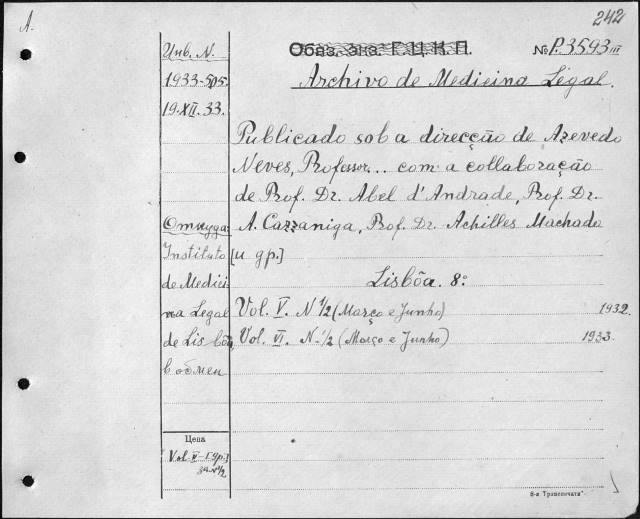 A.
242
Инв. N.
1933-505.
19·XII.33.
Обяз. экз. Г.Ц.К.П.
№ P.3593 III
Archivo de Medicina Legal.
Publicado sob a direcção de Azevedo
Neves, Professor... com a collaboração
de Prof. Dr. Abel d'Andrade, Prof. Dr.
A. Cazzaniga, Prof. Dr. Achilles Machado
[и др.]
Lisbôa. 8º
Vol. V. N 1/2 (Março e Junho) 1932.
Vol. VI. N. 1/2 (Março e Junho) 1933.
Откуда:
Instituto
de Medici
na Legal
de Lisbôa,
в обмен
Цена
Vol. V-1 др.
8-я Транспечати"